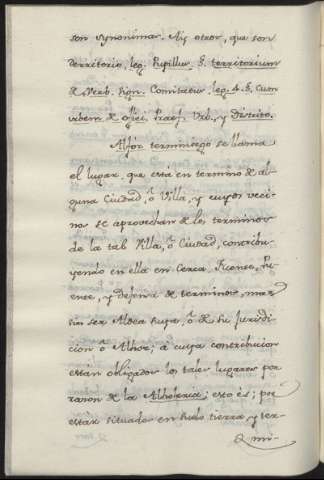 son synonimas. Ay otros, que son
territorio, leg. Pupillus §. territorium
de Verb. sign. Comitatus, leg. 4. §. Cum
urbem de offici. Praef. Urb., y Distrito.
Alfoz terminiego se llama
el lugar, que está en termino de al-
guna Ciudad, ò Villa, y cuyos veci-
nos se aprovechan de los terminos
de la tal Villa, ò Ciudad, contribu-
yendo en ella en Cerca, Fuente, Pu-
ente, y defensa de terminos, mas
sin ser Aldea suya, ò de su Jurisdi-
cion ò Alhoz; à cuya contribucion
están obligados los tales lugares por
razon de la Alholeria; esto es; por
estàr situados en suelo tierra, y ter-
mi-